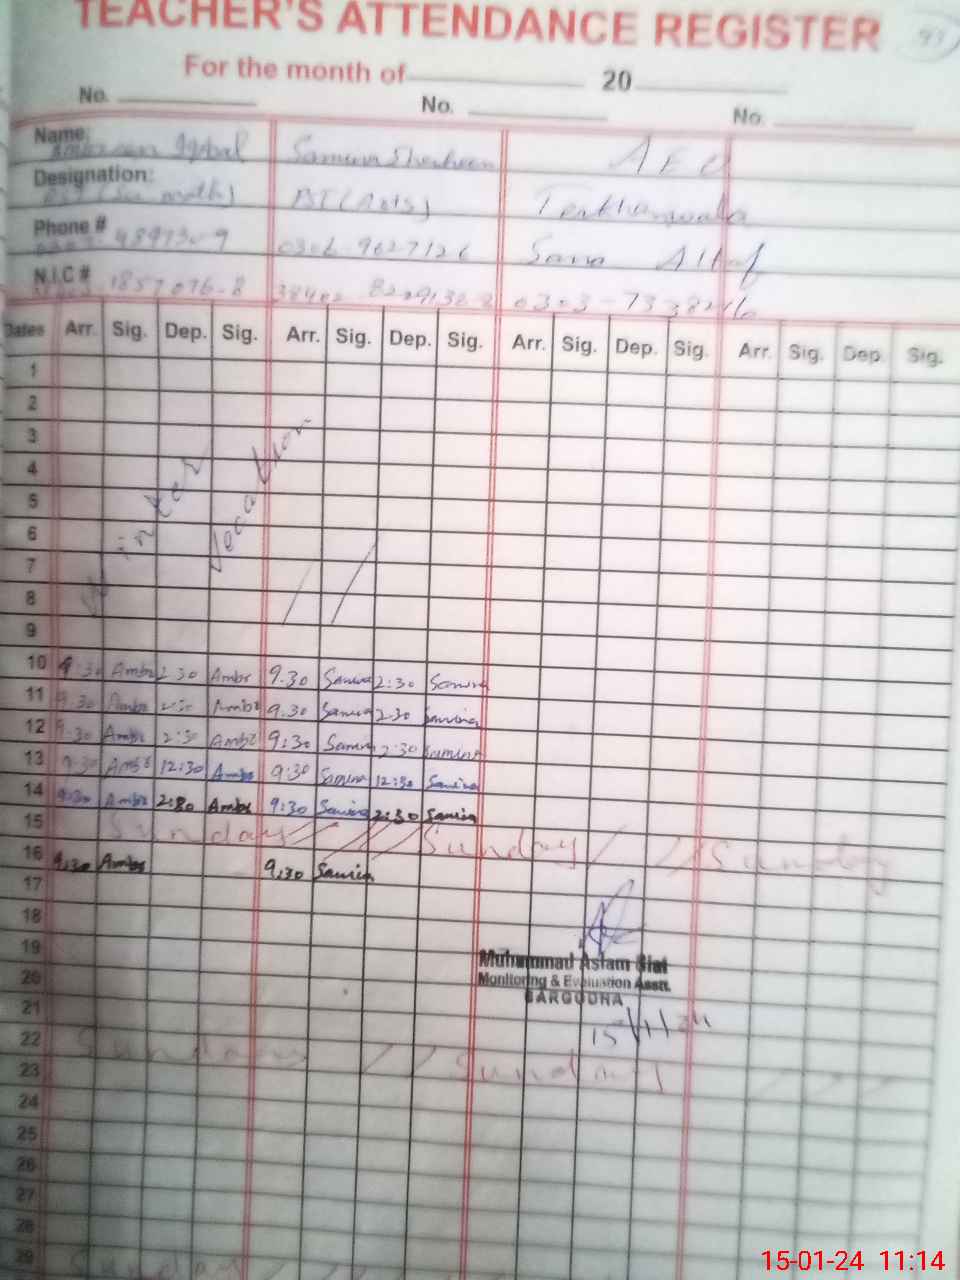 TEACHER'S ATTENDANCE REGISTER
For the month of 20
No. No. No.
Name: Iqbal Samina Shaheen AEO
Designation: PST (Sci math) PST (Arts)
Phone # 0306-9627126 Sana Altaf
N.I.C #
Dates Arr. Sig. Dep. Sig. Arr. Sig. Dep. Sig. Arr. Sig. Dep. Sig. Arr. Sig. Dep. Sig.
1
2
3
4
5
6
7
8
9
Winter Vacation
10 9:30 Ambr 2:30 Ambr 9.30 Samina 2:30 Samina
11 9:30 Ambr 2:30 Ambr 9.30 Samina 2:30 Samina
12 9:30 Ambr 2:30 Ambr 9:30 Samina 2:30 Samina
13 9:30 Ambr 12:30 Ambr 9:30 Samina 12:30 Samina
14 9:30 Ambr 2:30 Ambr 9:30 Samina 2:30 Samina
15 Sunday Sunday Sunday
16 9:30 Ambr 9:30 Samina
17
18
19
Muhammad Aslam
20
Monitoring & Evaluation Asstt.
SARGODHA
21
15/1/24
22 Sunday Sunday
23
24
25
26
27
28
29 Sunday
15-01-24 11:14